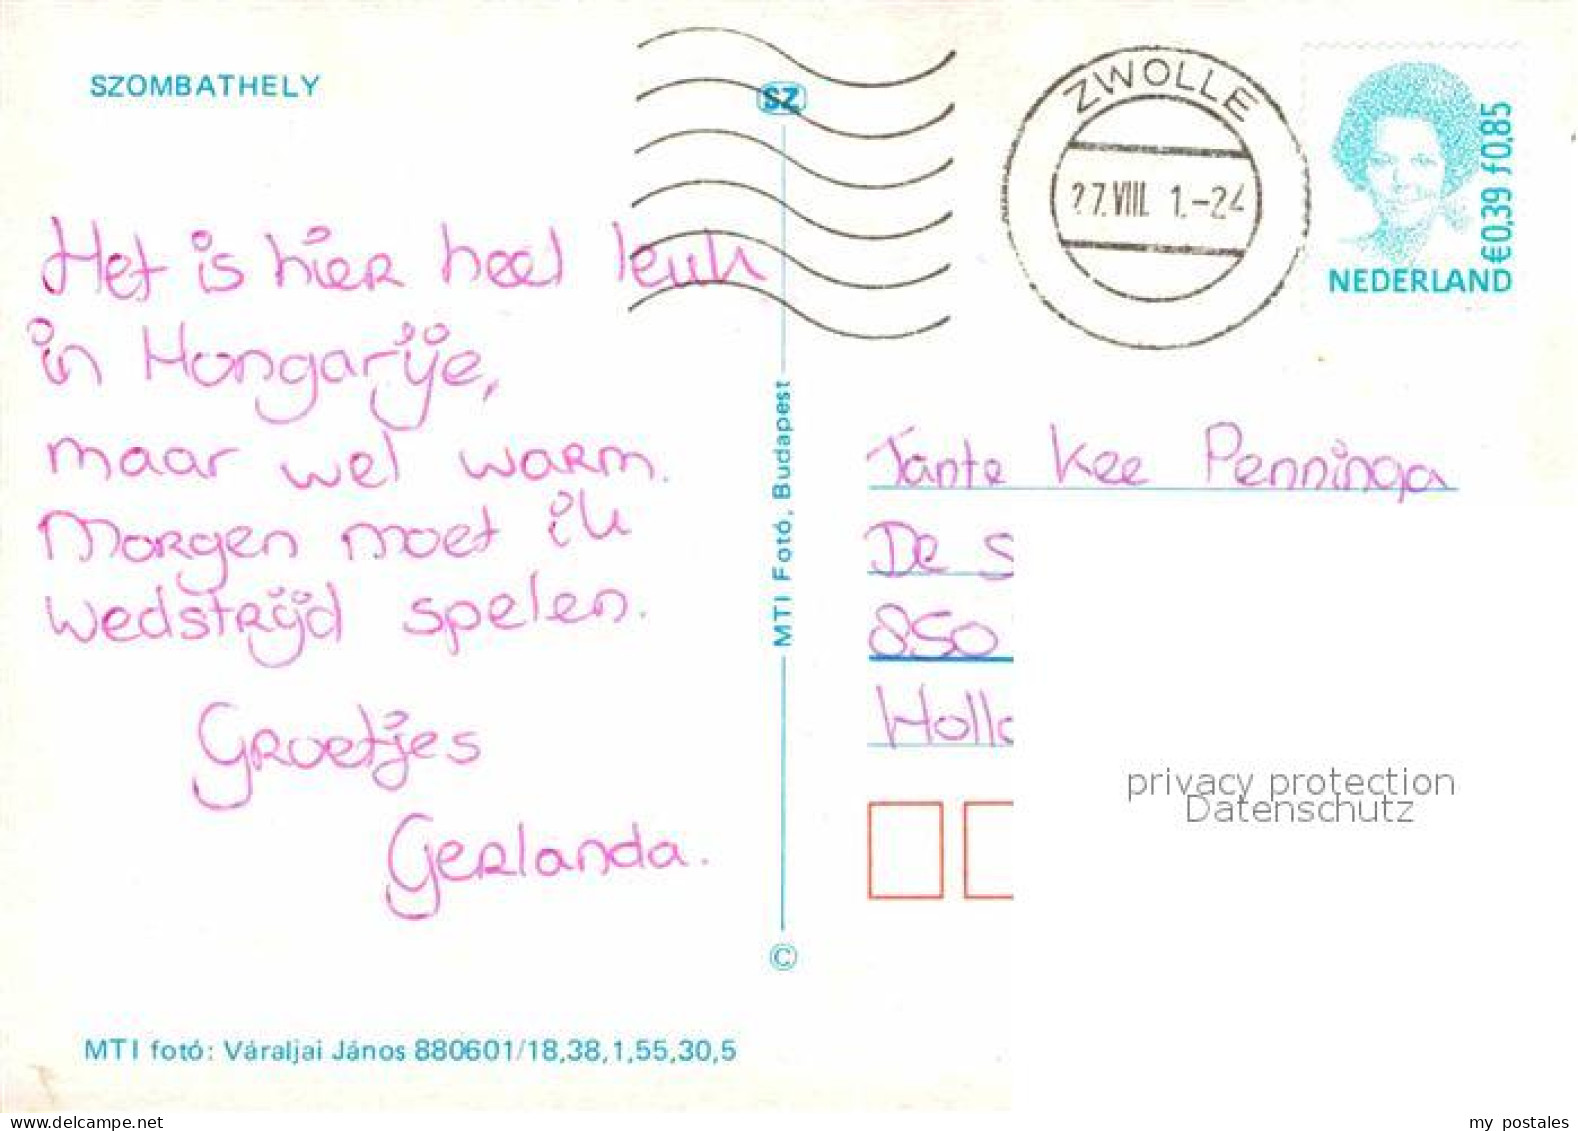 SZOMBATHELY
SZ
ZWOLLE
27.VIII. 1.-24
€0,39 f0,85
NEDERLAND
Het is hier heel leuk
in Hongarije,
maar wel warm.
Morgen moet ik
wedstrijd spelen.
Groetjes
Gerlanda.
MTI Fotó, Budapest
©
Tante Kee Penninga
De S
850
Holla
privacy protection
Datenschutz
MTI fotó: Váraljai János 880601/18,38,1,55,30,5
www.delcampe.net
my postales